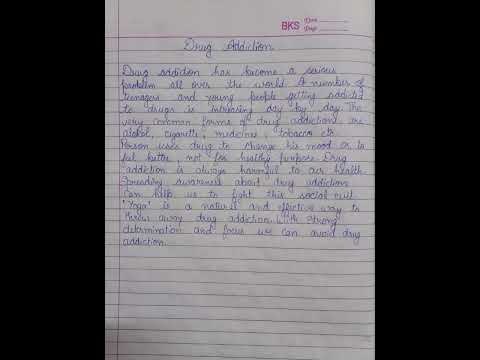 BKS Date
Page
Drug Addiction
Drug addiction has become a serious
problem all over the world. A number of
teenagers and young people getting addicted
to drugs is increasing day by day. The
very common forms of drug addictions are
alcohol, cigarette, medicines, tobacco etc.
Person uses drug to change his mood or to
feel better, not for healthy purpose. Drug
addiction is always harmful to our health.
Spreading awareness about drug addictions
can help us to fight this social evil.
'Yoga' is a natural and effective way to
throw away drug addiction. With strong
determination and focus we can avoid drug
addiction.